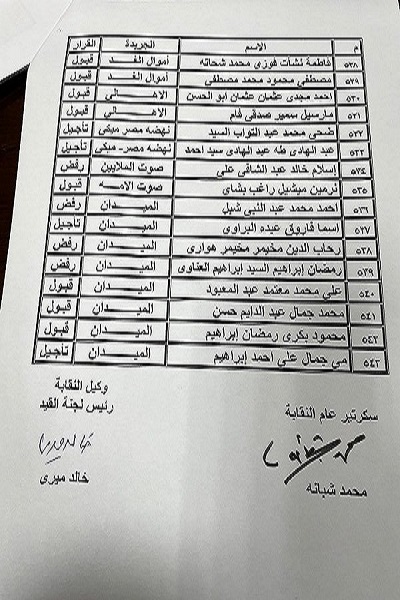 م الاسم الجريدة القرار
٥٢٨ فاطمة نشأت فوزى محمد شحاته أموال الغد قبول
٥٢٩ مصطفى محمود محمد مصطفى أموال الغد قبول
٥٣٠ احمد مجدى عثمان عثمان ابو الحسن الاهالى قبول
٥٣١ مارسيل سمير صدقى فام الاهالى قبول
٥٣٢ ضحى محمد عبد التواب السيد نهضه مصر- ميكى تأجيل
٥٣٣ عبد الهادى طه عبد الهادى سيد احمد نهضه مصر- ميكى تأجيل
٥٣٤ إسلام خالد عبد الشافى على صوت الملايين رفض
٥٣٥ نرمين ميشيل راغب بشاى صوت الامه قبول
٥٣٦ احمد محمد عبد النبى شبل الميدان رفض
٥٣٧ اسما فاروق عبده البراوى الميدان تأجيل
٥٣٨ رحاب الدين مخيمر مخيمر هوارى الميدان رفض
٥٣٩ رمضان إبراهيم السيد إبراهيم العناوى الميدان رفض
٥٤٠ على محمد معتمد عبد المعبود الميدان قبول
٥٤١ محمد جمال عبد الدايم حسن الميدان قبول
٥٤٢ محمود بكرى رمضان إبراهيم الميدان قبول
٥٤٣ مي جمال علي احمد إبراهيم الميدان تأجيل
سكرتير عام النقابة
محمد شبانه
وكيل النقابة
رئيس لجنة القيد
خالد ميرى